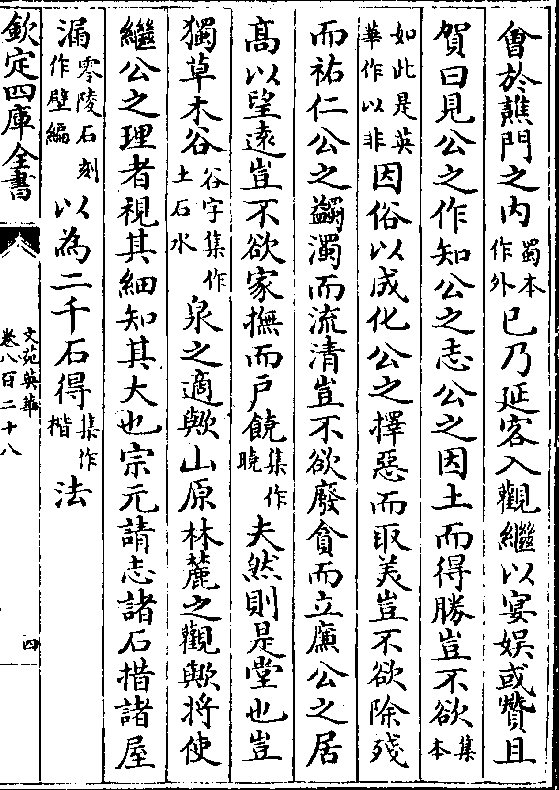 會於譙門之内蜀本作外已乃延客入觀繼以宴娱或贊且
賀曰見公之作知公之志公之因土而得勝豈不欲集本
如此是英華作以非因俗以成化公之擇惡而取美豈不欲除殘
而祐仁公之蠲濁而流清豈不欲廢貪而立㢘公之居
髙以望逺豈不欲家撫而戸饒集作曉夫然則是堂也豈
獨草木谷谷字集作土石水泉之適歟山原林麓之觀歟將使
繼公之理者視其細知其大也宗元請志諸石措諸屋
漏零陵石刻作壁編以為二千石得集作楷法
欽定四庫全書
文苑英華
卷八百二十八
四